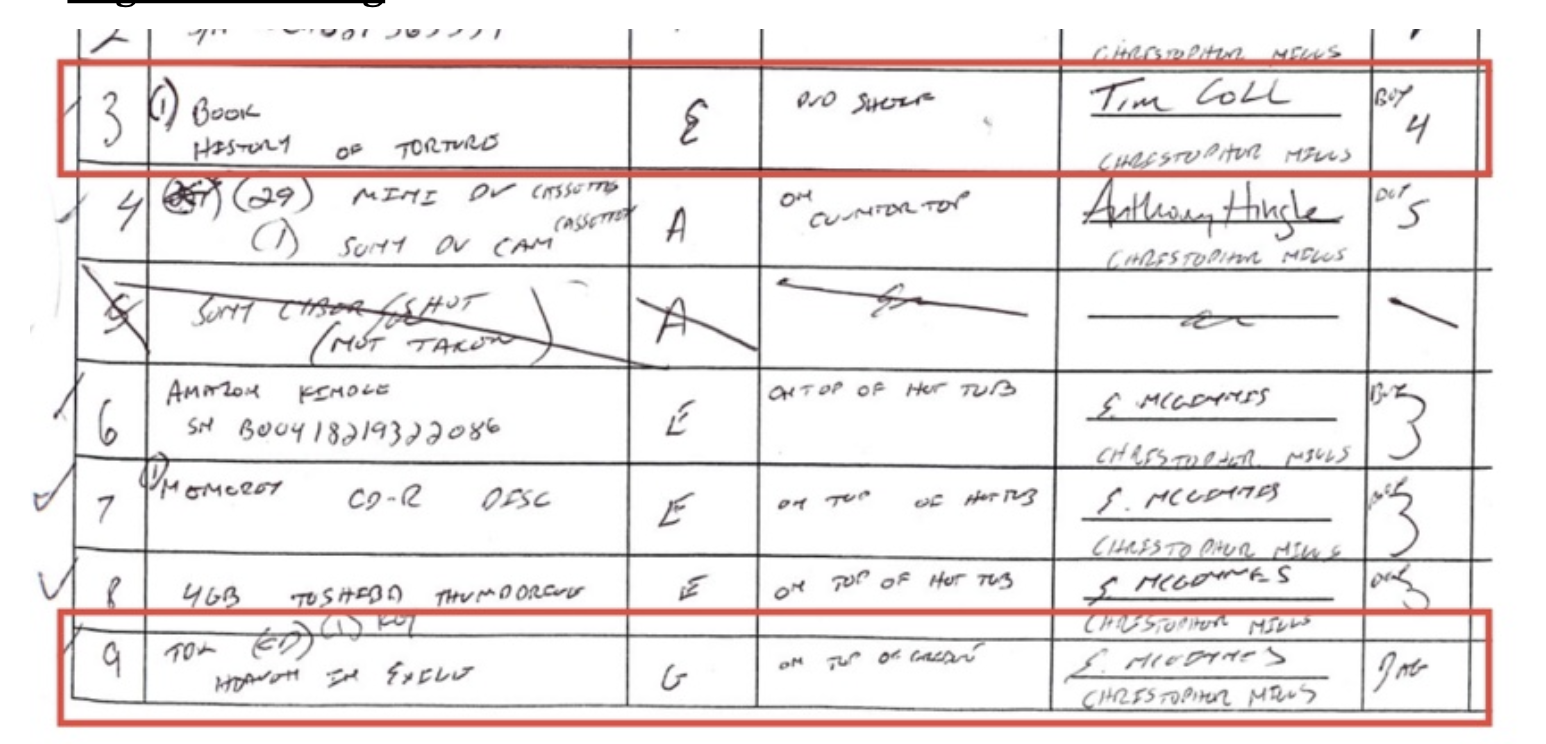 CHRISTOPHER MILLS
3 (1) BOOK E Tim Coll BOX 4
HISTORY OF TORTURE CHRISTOPHER MILLS
4 (29) MINI DV CASSETTES A ON COUNTERTOP Anthony Hingle 5
(1) SONY DV CAM CASSETTE CHRISTOPHER MILLS
5 SONY A
(NOT TAKEN)
6 AMAZON KINDLE E ON TOP OF HOT TUB S. MCGINNIS BOX 3
SN B00418219322086 CHRISTOPHER MILLS
7 (1) MEMOREX CD-R DISC E ON TOP OF HOT TUB S. MCGINNIS BOX 3
CHRISTOPHER MILLS
8 4GB TOSHIBA THUMBDRIVE E ON TOP OF HOT TUB S. MCGINNIS BOX 3
CHRISTOPHER MILLS
9 (1) G ON TOP OF S. MCGINNIS BAG
IN EXILE CHRISTOPHER MILLS